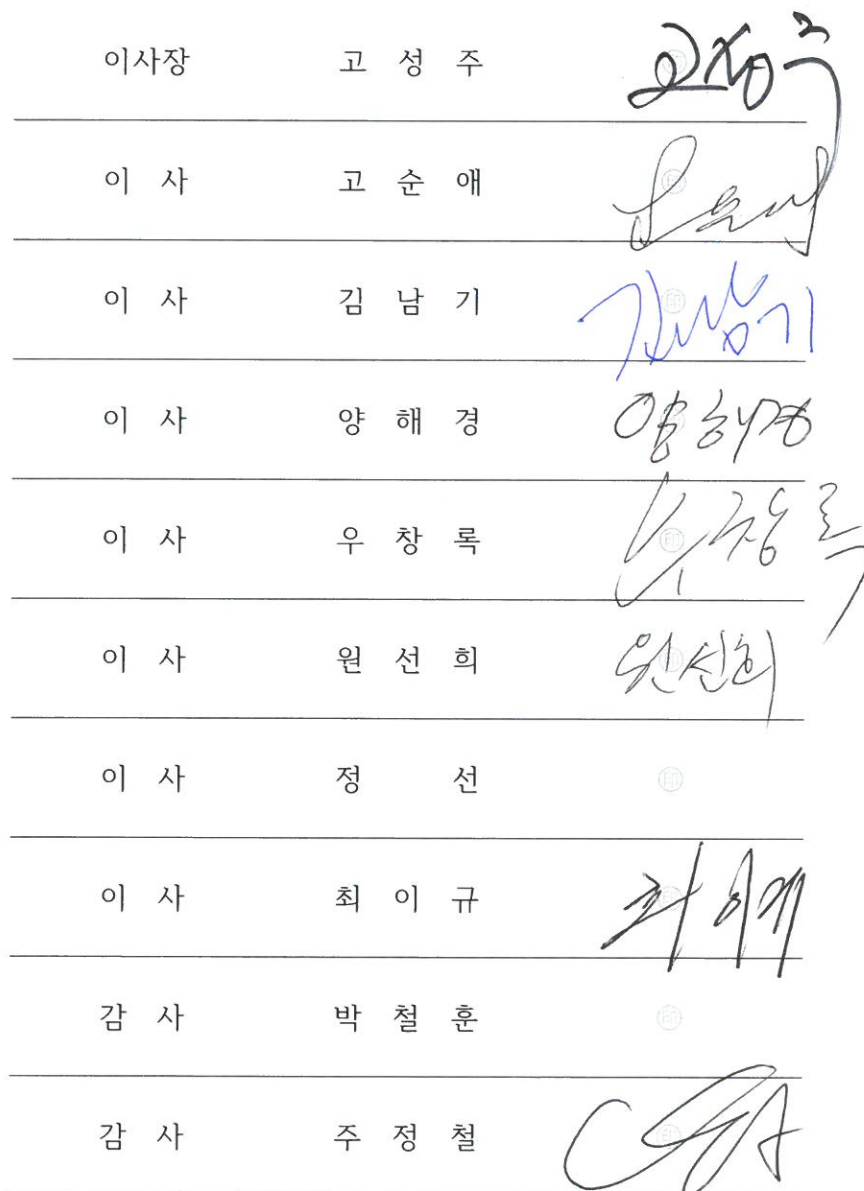 이사장 고 성 주 고성주
이 사 고 순 애
이 사 김 남 기 김남기
이 사 양 해 경 양해경
이 사 우 창 록 우창록
이 사 원 선 희 원선희
이 사 정 선 印
이 사 최 이 규 최이규
감 사 박 철 훈 印
감 사 주 정 철